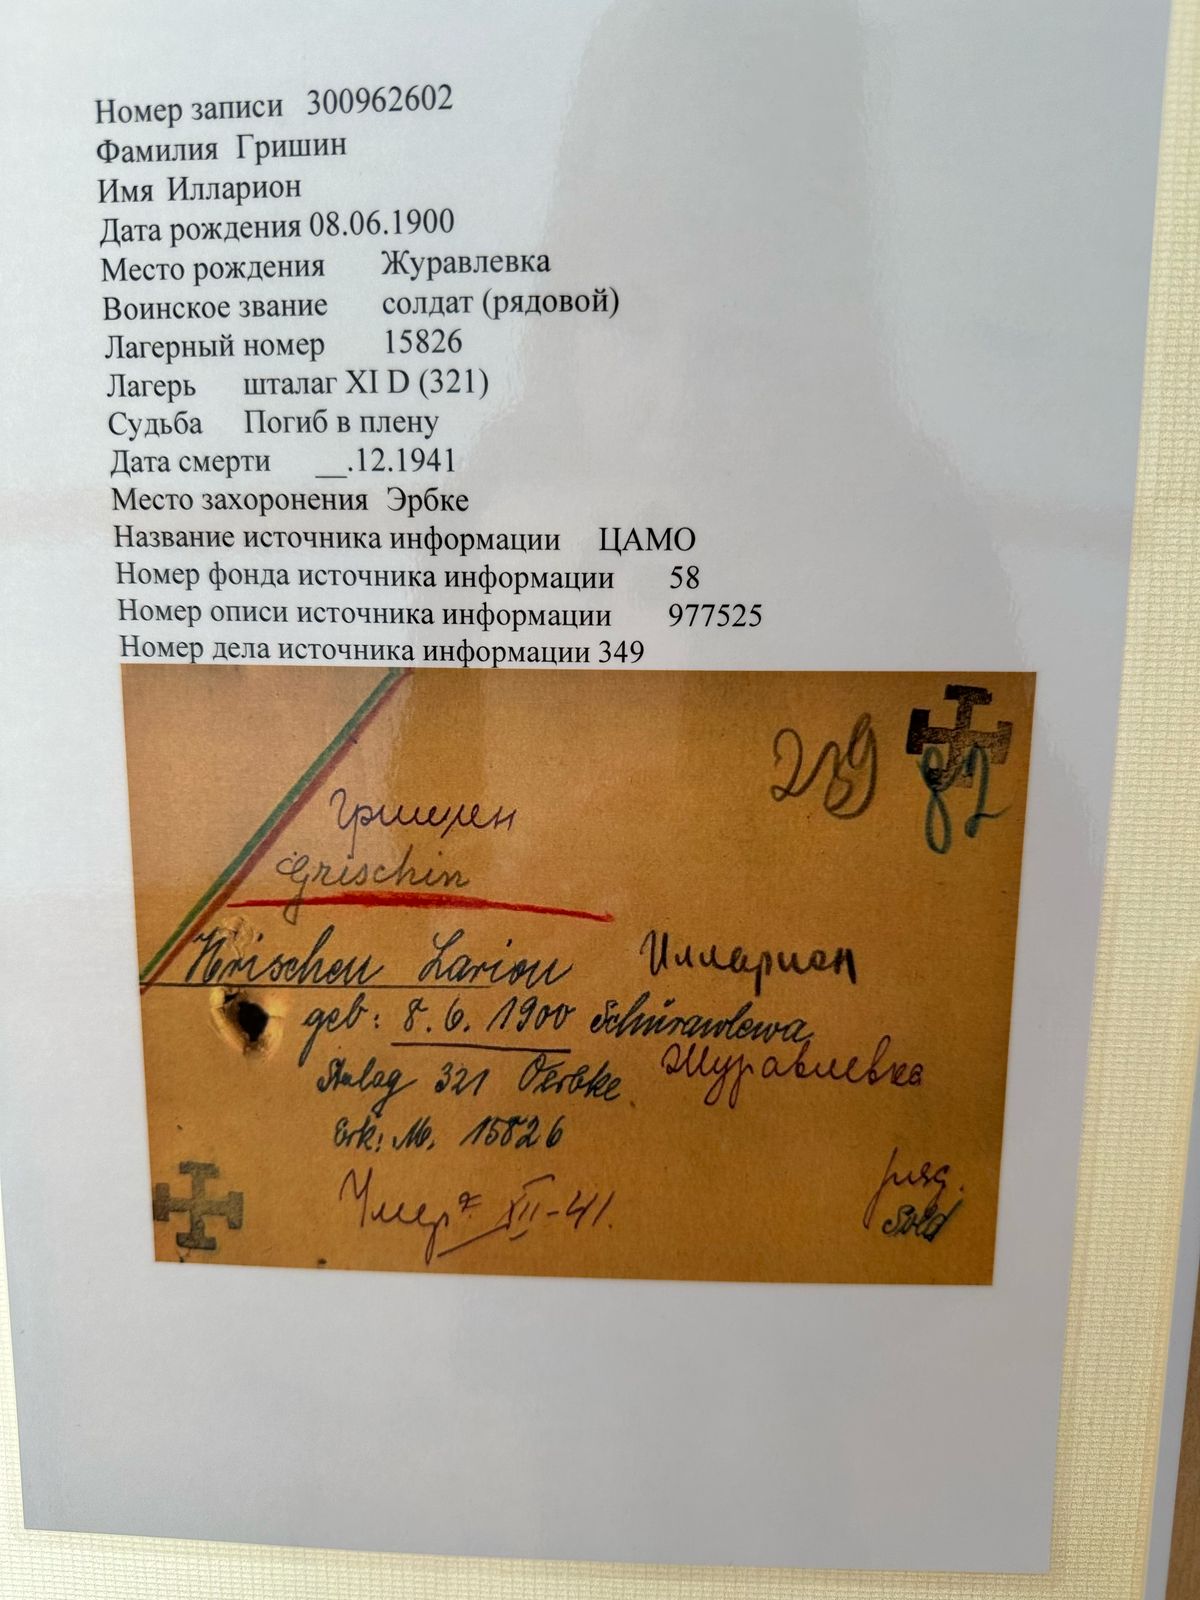 Номер записи 300962602
Фамилия Гришин
Имя Илларион
Дата рождения 08.06.1900
Место рождения Журавлевка
Воинское звание солдат (рядовой)
Лагерный номер 15826
Лагерь шталаг XI D (321)
Судьба Погиб в плену
Дата смерти __.12.1941
Место захоронения Эрбке
Название источника информации ЦАМО
Номер фонда источника информации 58
Номер описи источника информации 977525
Номер дела источника информации 349
239 82
Гришин
Grischin
Krischen Larion Илларион
geb: 8. 6. 1900 Schurawlewa
Журавлевка
Stalag 321 Oerbke
Erk: M. 15826
Умер XII-41.
ряд.
Sold